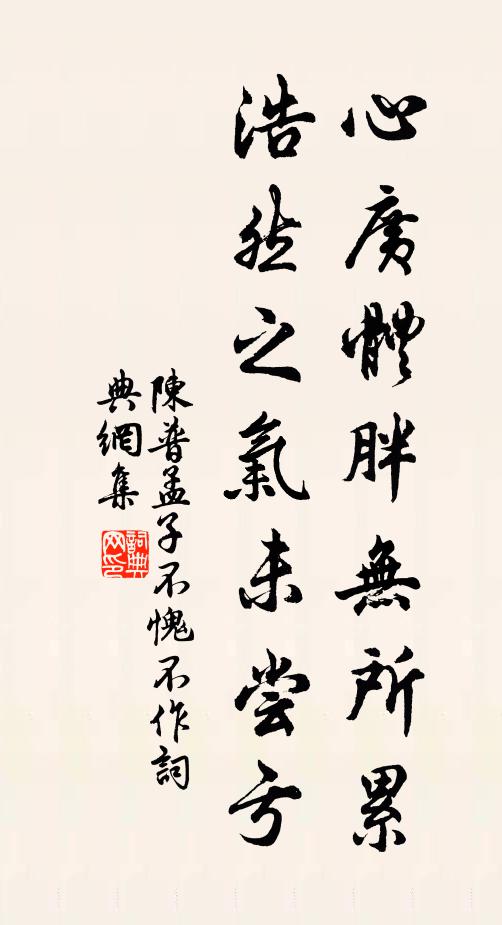 心廣體胖無所累
浩然之氣未尝亏
陳普孟子不愧不作詞
典網集
詞典
网印